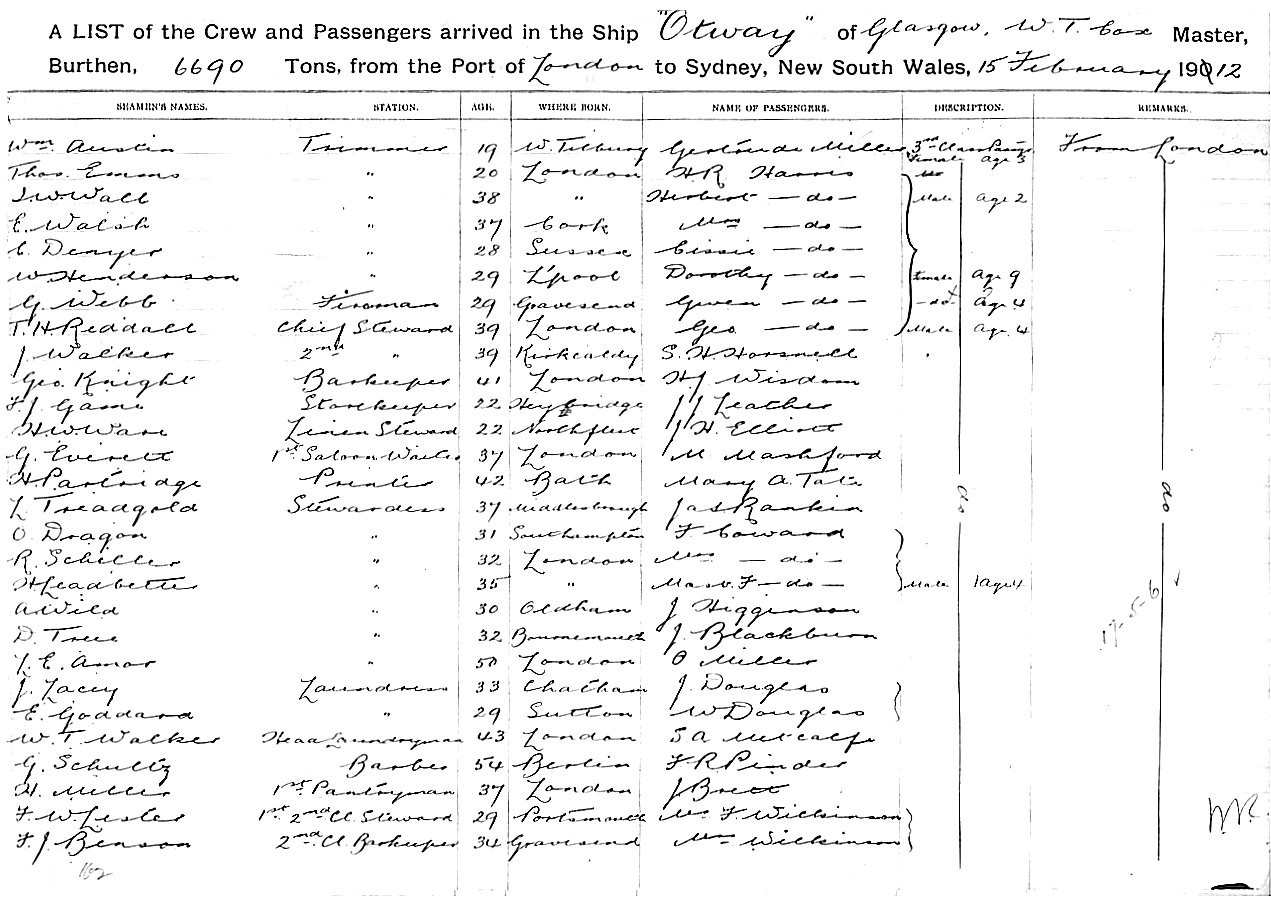 A LIST of the Crew and Passengers arrived in the Ship "Otway" of Glasgow, W. T. Cox Master,
Burthen, 6690 Tons, from the Port of London to Sydney, New South Wales, 15 February 1912
SEAMEN'S NAMES. STATION. AGE. WHERE BORN. NAME OF PASSENGERS. DESCRIPTION. REMARKS.
Wm. Austin Trimmer 19 W. Tilbury Gertrude Miller 3rd Class Female age 3 From London
Thos. Emms " 20 London H R Harris
J. W. Wall " 38 " Herbert — do — Male age 2
E. Walsh " 37 Cork Mrs — do —
C. Denyer " 28 Sussex Cissie — do —
W Henderson " 29 L'pool Dorothy — do — Female age 9
G. Webb Fireman 29 Gravesend Gwen — do — — do — age 4
T. H. Reddall Chief Steward 39 London Geo — do — Male age 4
J Walker 2nd " 39 Kirkcaldy S. H. Horsnell
Geo. Knight Barkeeper 41 London H J Wisdom
F. J. Game Storekeeper 22 Heybridge J J Leather
H. W. Ware Linen Steward 22 Northfleet J H. Elliott
G. Everett 1st Saloon Waiter 37 London M Mashford
H Partridge Printer 42 Bath Mary A. Tate
L. Treadgold Stewardess 37 Middlesbrough Jas Rankin do do
O. Dragon " 31 Southampton F Coward
R. Schiller " 32 London Mrs — do —
H Leadbetter " 35 " Mast. F — do — Male age 4
A. Wild " 30 Oldham J Higginson 17-5-6
D. Tree " 32 Bournemouth J. Blackburn
J. E. Amor " 50 London O Miller
J. Lacey Laundress 33 Chatham J. Douglas
E. Goddard " 29 Sutton W Douglas
W. T. Walker Head Laundryman 43 London S A Metcalfe
G. Schultz Barber 54 Berlin F R Pinder
H. Miller 1st Pantryman 37 London J Brett
F. W Lester 1st 2nd Cl. Steward 29 Portsmouth F. Wilkinson
F. J. Benson 2nd Cl Barkeeper 34 Gravesend Mrs Wilkinson
162